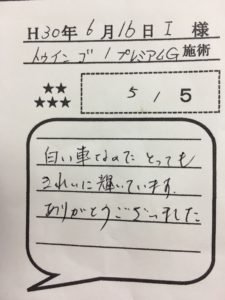 H30年6月16日I様
トゥインゴ / プレミアムG施術
★★
★★★
5 / 5
白い車なのでとっても
きれいに輝いています.
ありがとうございました